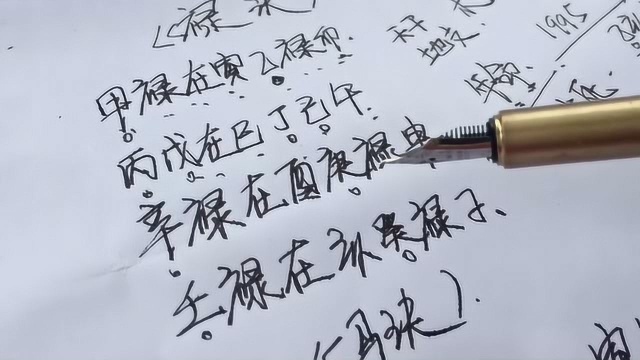 《禄诀
甲禄在寅乙禄卯.
丙戊在巳丁己午.
辛禄在酉庚禄申
壬禄在亥癸禄子.
(口诀).
天干
地支
年命
1995